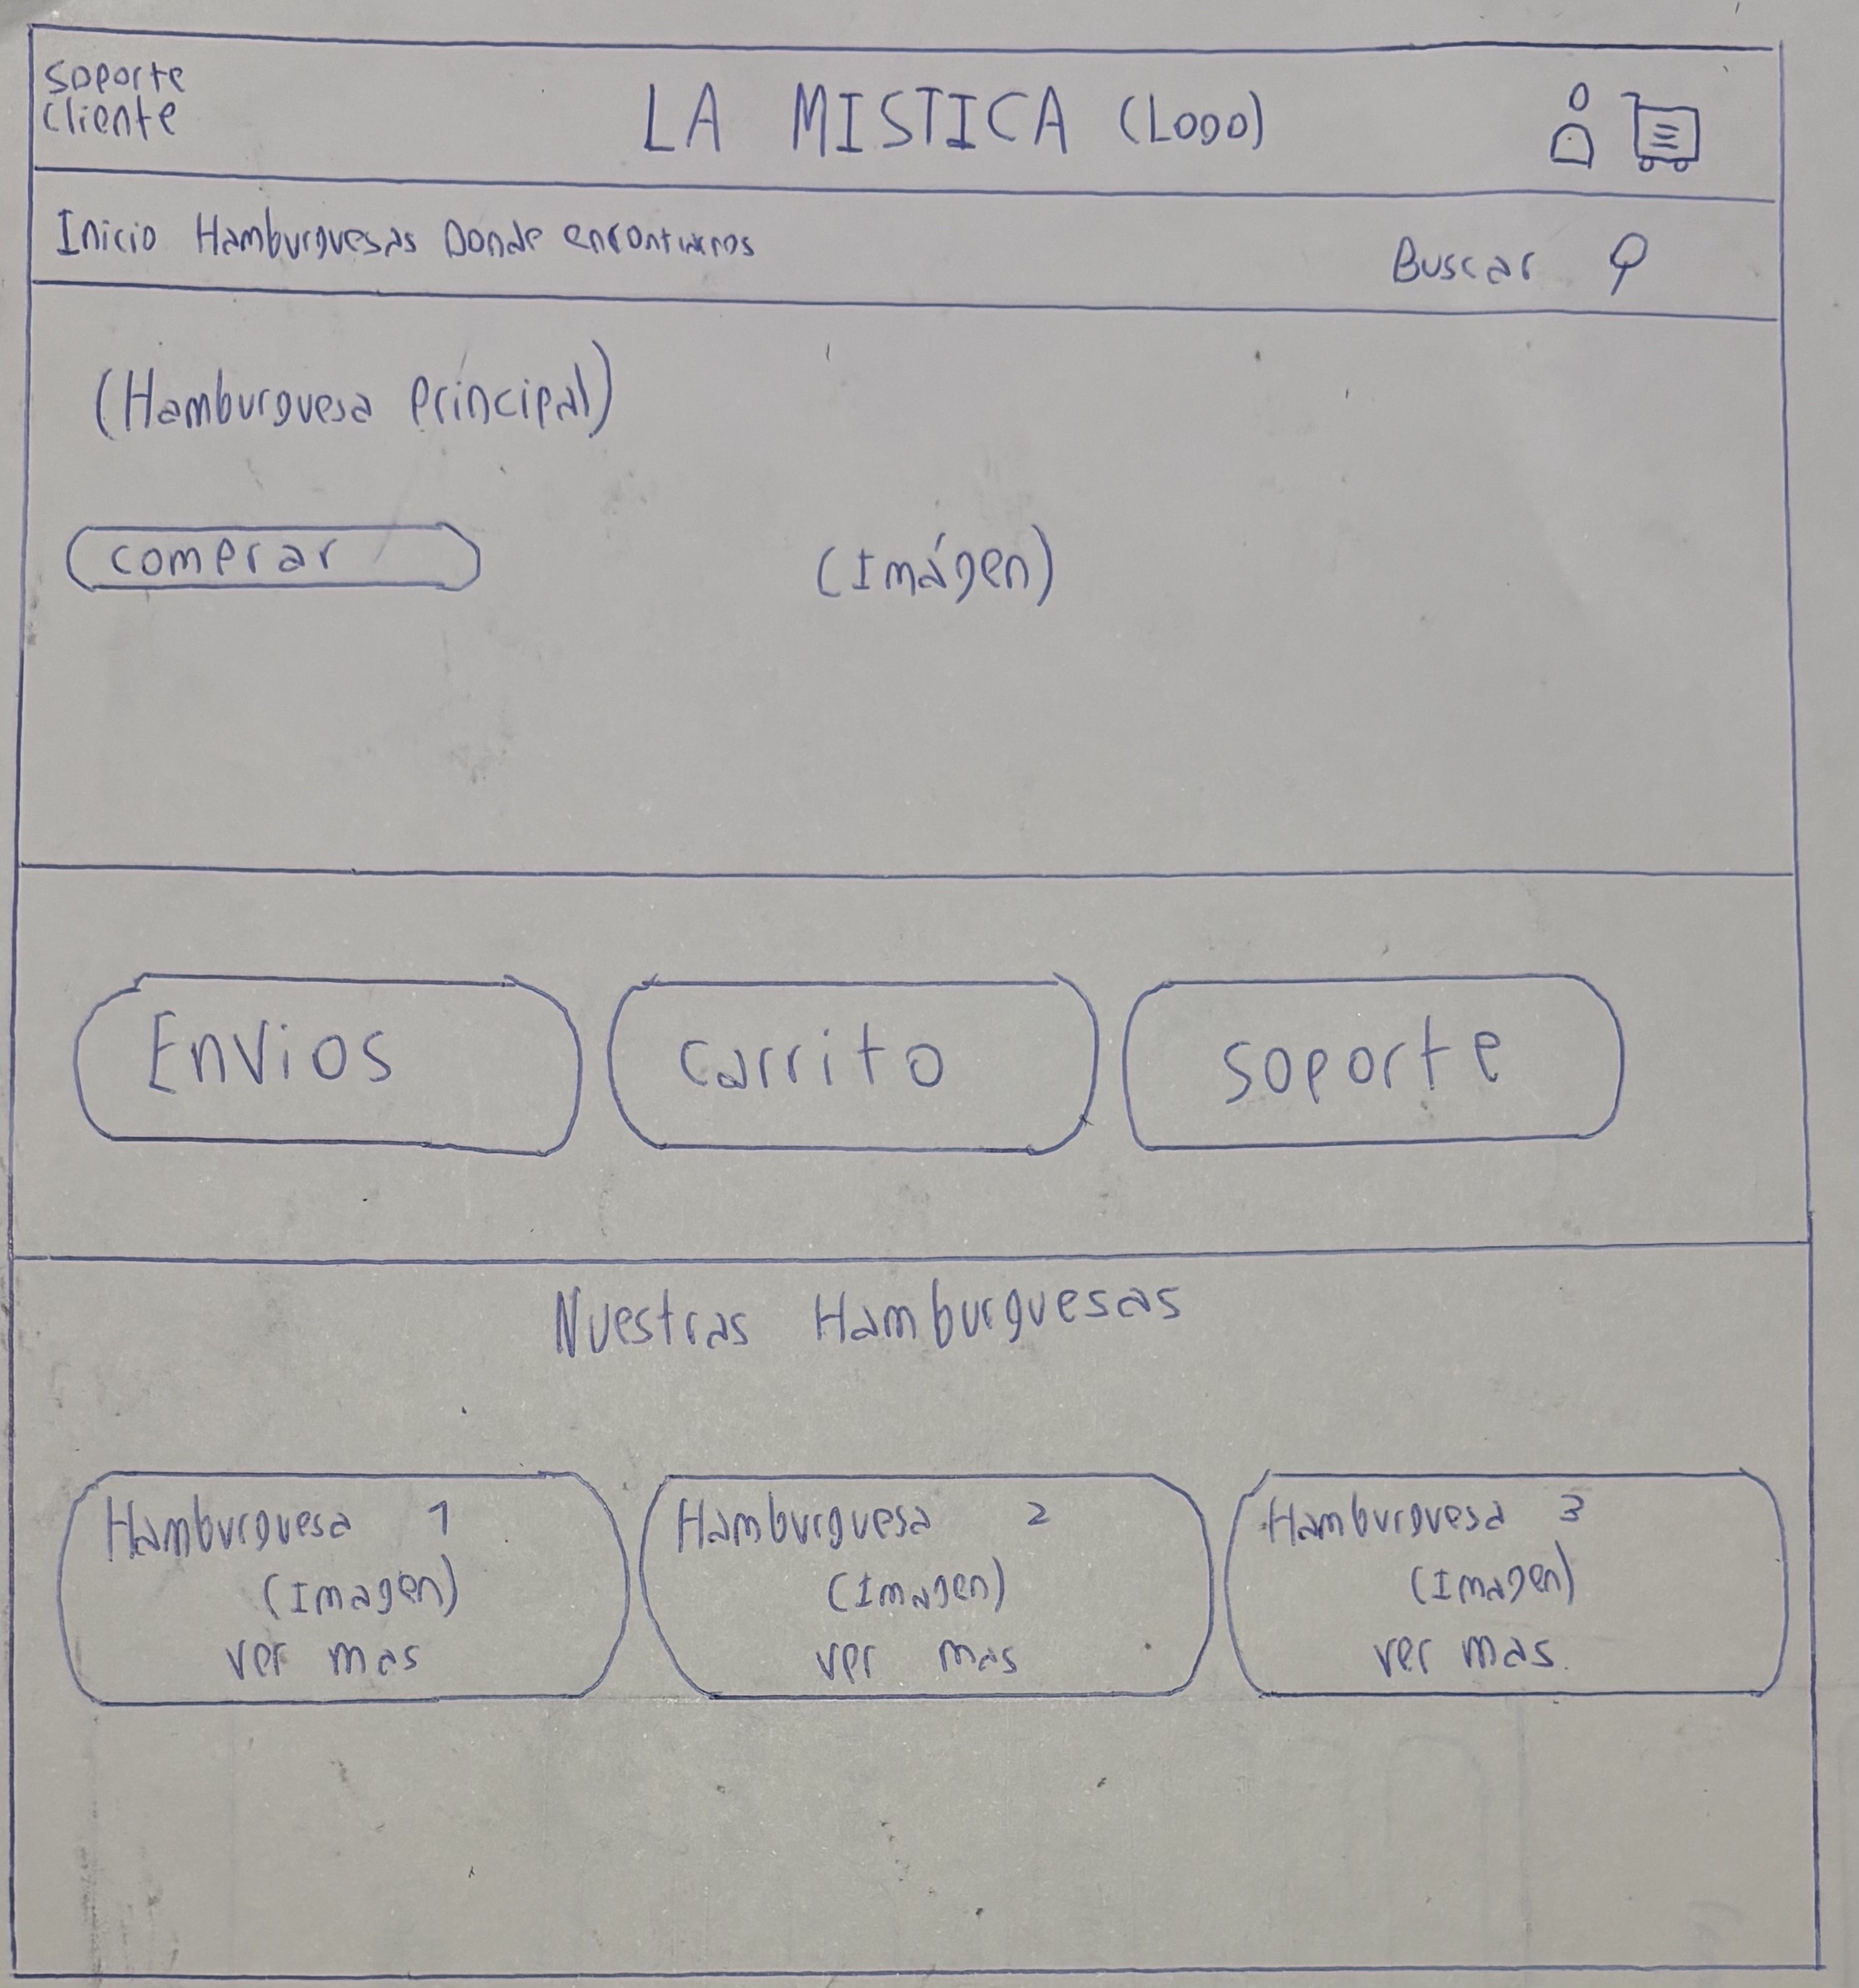 Soporte
Cliente
LA MISTICA (Logo)
Inicio Hamburguesas Donde encontrarnos
Buscar
(Hamburguesa Principal)
comprar
(Imágen)
Envios
carrito
soporte
Nuestras Hamburguesas
Hamburguesa 1
(Imagen)
ver mas
Hamburguesa 2
(Imagen)
ver mas
Hamburguesa 3
(Imagen)
ver mas.